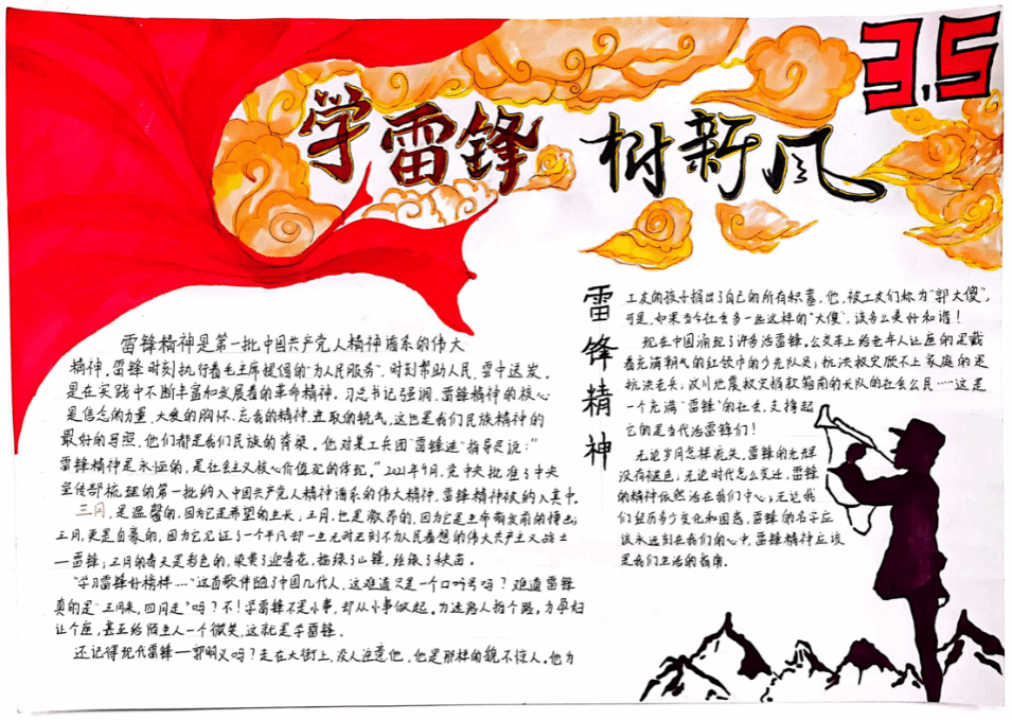 3.5
学雷锋 树新风
雷锋精神是第一批中国共产党人精神谱系的伟大
精神。雷锋时刻执行着毛主席提倡的“为人民服务”。时刻帮助人民,雪中送炭。
是在实践中不断丰富和发展着的革命精神。习总书记强调,雷锋精神的核心
是信念的力量、大爱的胸怀、忘我的精神、进取的锐气,这也是我们民族精神的
最好的写照,他们都是我们民族的脊梁。他对某工兵团“雷锋连”指导员说:“
雷锋精神是永恒的,是社会主义核心价值观的体现。”2021年9月,党中央批准了中央
宣传部梳理的第一批纳入中国共产党人精神谱系的伟大精神,雷锋精神被纳入其中。
三月,是温馨的,因为它是希望的生长;三月,也是激昂的,因为它是生命有
三月,更是自豪的,因为它见证了一个平凡却一生无时无刻不为人民着想的伟大共产主义战士
—雷锋;三月的春天是彩色的,染黄了迎春花,描绿了山锋,
“学习雷锋好榜样……”这首歌伴随了中国几代人,这难道只是一个口号吗?难道雷锋
真的是“三月来,四月走”吗?不!学雷锋不是小事,却从小事做起。为迷路人指个路,为孕妇
让个座,甚至给陌生人一个微笑,这就是学雷锋。
还记得现代雷锋—郭明义吗?走在大街上,没人注意他,他是那样的貌不惊人。他为
雷锋精神
工友的孩子捐出了自己的所有积蓄。他,被工友们称为“郭大傻”,
可是,如果当今社会多一些这样的“大傻”,该多么美好和谐!
现在中国涌现了许多活雷锋。公交车上给老年人让座的是戴
着充满朝气的红领巾的少先队员;抗洪救灾顾不上家庭的是
抗洪老兵;汶川地震救灾捐款箱前的长队的社会公民……这是
一个充满“雷锋”的社会,支撑起
它的是当代活雷锋们!
无论岁月怎样流失,雷锋的光辉
没有褪色;无论时代怎么变迁,雷锋
的精神依然活在我们中心;无论我
们经历多少变化和困惑,雷锋的名字应
该永远刻在我们的心中,雷锋精神应该
是我们生活的指南。